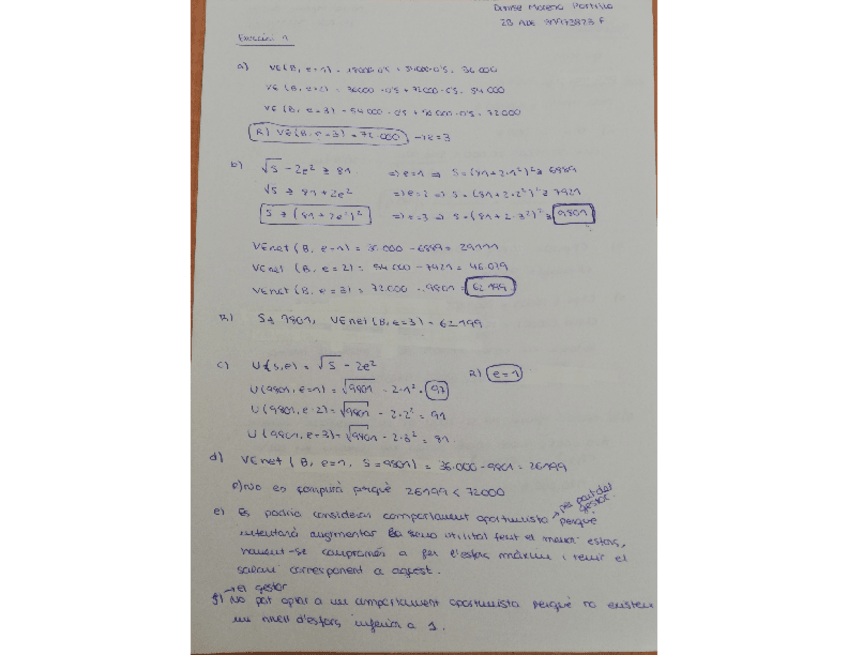 Denise Moreno Portillo
2B ADE
Exercici 1
a) VE(B, e=1) = 18000·0'5 + 54000·0'5 = 36 000
VE (B, e=2) = 36000 · 0'5 + 72000 · 0'5 = 54 000
VE (B, e=3) = 54 000 · 0'5 + 90 000 · 0'5 = 72000
R) VE(B, e=3) = 72 000 → e=3
b) √S - 2e² ≥ 81 => e=1 => S = (81+2·1²)² ≥ 6889
√S ≥ 81 + 2e² => e=2 => S = (81+2·2²)² ≥ 7921
S ≥ (81 + 2e²)² => e=3 => S = (81+2·3²)² ≥ 9801
VEnet (B, e=1) = 36.000 - 6889 = 29111
VEnet (B, e=2) = 54 000 - 7921 = 46 079
VEnet (B, e=3) = 72 000 - 9801 = 62 199
R) 9801, VEnet (B, e=3) = 62 199
c) U(s,e) = √S - 2e² R) e=1
U(9801, e=1) = √9801 - 2·1² = 97
U(9801, e=2) = √9801 - 2·2² = 91
U(9801, e=3) = √9801 - 2·3² = 81
d) VEnet (B, e=1, S=9801) = 36.000 - 9801 = 26199
No es complirà perquè 26199 < 72000
e) Es podria considerar comportament oportunista → per part del gestor. perquè
intentarà augmentar la seva utilitat fent el menor esforç,
havent-se compromès a fer l'esforç màxim i rebre el
salari corresponent a aquest.
→ el gestor
f) No pot optar a un comportament oportunista perquè no existeix
un nivell d'esforç inferior a 1.